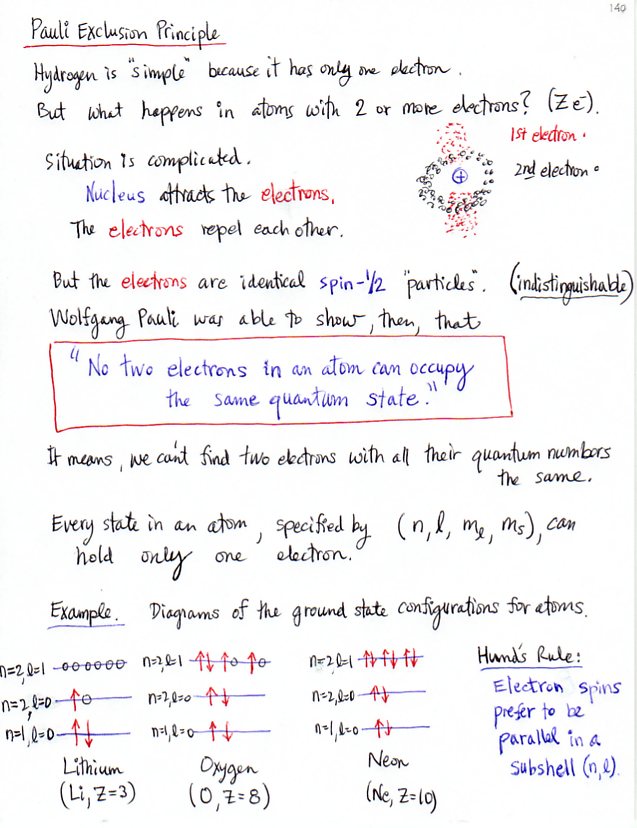 140
Pauli Exclusion Principle
Hydrogen is "simple" because it has only one electron.
But what happens in atoms with 2 or more electrons? (Z e⁻).
1st electron •
Situation is complicated.
2nd electron °
Nucleus attracts the electrons.
+
The electrons repel each other.
But the electrons are identical spin-1/2 "particles". (indistinguishable)
Wolfgang Pauli was able to show, then, that
"No two electrons in an atom can occupy
the same quantum state."
It means, we can't find two electrons with all their quantum numbers
the same.
Every state in an atom, specified by (n, l, mₗ, mₛ), can
hold only one electron.
Example. Diagrams of the ground state configurations for atoms.
n=2, l=1 oooooo n=2, l=1 ↑↓ ↑o ↑o n=2, l=1 ↑↓ ↑↓ ↑↓
n=2, l=0 ↑o n=2, l=0 ↑↓ n=2, l=0 ↑↓
n=1, l=0 ↑↓ n=1, l=0 ↑↓ n=1, l=0 ↑↓
Lithium Oxygen Neon
(Li, Z=3) (O, Z=8) (Ne, Z=10)
Hund's Rule:
Electron spins
prefer to be
parallel in a
subshell (n, l).